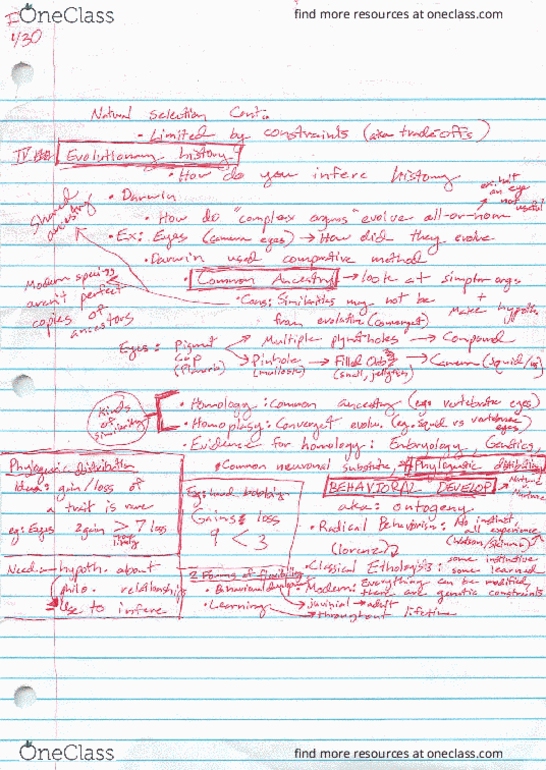 OneClass
find more resources at oneclass.com
4/30
Natural Selection Cont.
• Limited by constraints (aka tradeoffs)
IV. Evolutionary history?
• How do you infere history
• Darwin
an eye
not useful
Shared
ancestry
• How do "complex orgns" evolve all-or-none
• Ex: Eyes (camera eyes) → How did they evolve
• Darwin used comparative method
Common Ancestry → look at simpler orgs
+ Make hypoth.
Modern species
aren't perfect
copies of
ancestors
• Cons: Similarities may not be
from evolution (converget)
Eyes: Pigment
Cup
Multiple pinholes → Compound
Pinhole → Filled → Camera (squid/us)
(mollusk) (snail, jellyfish)
Kinds
of
similarity
• Homology: Common ancestry (ego vertebrate eyes)
• Homoplasy: Converget evolu. (eg. Squid vs vertebrate
eyes)
• Evidence for homology: Embryology, Genetics,
Common neuronal substrate, Phylogenetic distribution
Phylogenic distribution
Idea: gain/loss of
a trait is rare
eg: Eyes 2 gain > 7 loss
Need hypoth. about
relationships
Use to infere
Gains loss
9 < 3
BEHAVIORAL DEVELOP → Nature
Nurture
aka: ontogeny
• Radical Behaviorism: No instinct,
all experience
(Watson/Skinner)
(Lorenz)
• Classical Ethologists: some instinctive
some learned
• Modern: Everything can be modified,
there are genetic constraints
2 Forms of flexibility
• Behavioral
• Learning
→ adult
→ throughout lifetime
OneClass
find more resources at oneclass.com